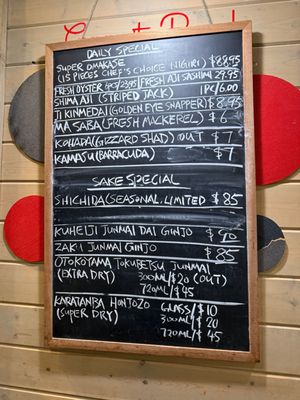 DAILY SPECIAL
SUPER OMAKASE $88.95
(15 PIECES CHEF'S CHOICE NIGIRI)
FRESH OYSTER 6PCS/23.95 FRESH AJI SASHIMI 29.95
SHIMA AJI (STRIPED JACK) 1PC/6.00
JI KINMEDAI (GOLDEN EYE SNAPPER) $8.95
MA SABA (FRESH MACKEREL) $6
KOHADA (GIZZARD SHAD) OUT $7
KAMASU (BARRACUDA) $7
SAKE SPECIAL
SHICHIDA (SEASONAL LIMITED $85
KUHEIJI JUNMAI DAI GINJO $90
ZAKU JUNMAI GINJO $85
OTOKOYAMA TOKUBETSU JUNMAI
(EXTRA DRY) 300ml/$20 (OUT)
720ML/$45
KARATANBA HONJOZO GLASS/$10
(SUPER DRY) 300ml/$20
720ML/$45